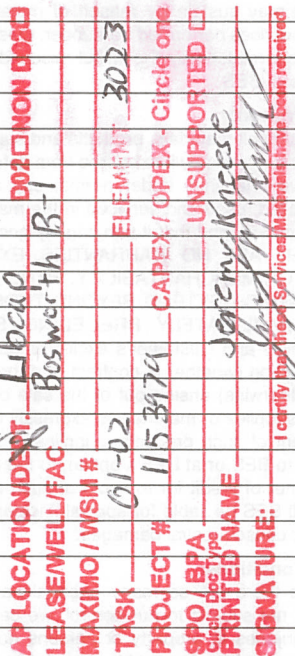 AP LOCATION/DEPT. Libcap D02☐ NON D02☐
LEASE/WELL/FAC Bosworth B-1
MAXIMO / WSM #
TASK 01-02 ELEMENT 3023
PROJECT # 1153974 CAPEX / OPEX - Circle one
SPO / BPA UNSUPPORTED ☐
Circle Doc Type
PRINTED NAME Jeremy Kneese
SIGNATURE:
I certify that these Services/Materials have been received